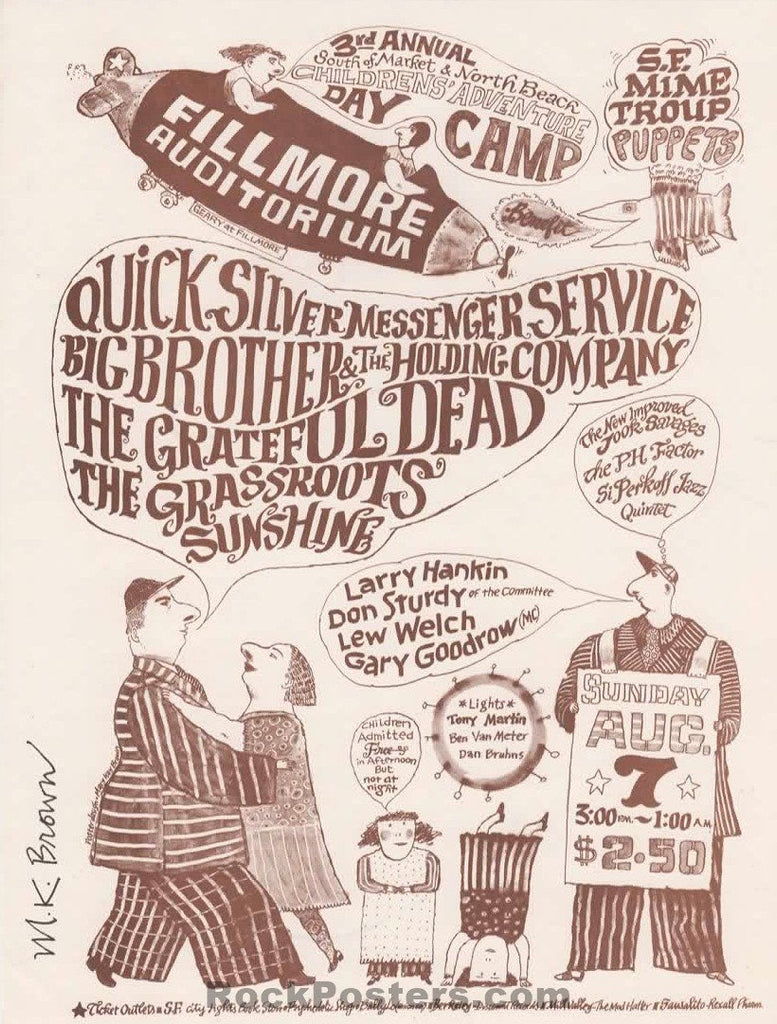 3rd ANNUAL
South of Market & North Beach
CHILDRENS' ADVENTURE
DAY CAMP
S.F.
MIME
TROUP
PUPPETS
FILLMORE
AUDITORIUM
GEARY at FILLMORE
Benefit
QUICKSILVER MESSENGER SERVICE
BIG BROTHER & THE HOLDING COMPANY
THE GRATEFUL DEAD
THE GRASSROOTS
SUNSHINE
The New Improved
Jook Savages
The PH Factor
Si Perkoff Jazz
Quintet
Larry Hankin
Don Sturdy of the Committee
Lew Welch
Gary Goodrow (MC)
*Lights*
Tony Martin
Ben Van Meter
Dan Bruhns
Children
Admitted
Free
in Afternoon
But
not at
night
SUNDAY
AUG.
7
3:00 P.M. ~ 1:00 A.M.
$2.50
M.K. Brown
RockPosters.com
★ Ticket Outlets S.F. City Lights Book Store Psychedelic Shop Berkeley Records Mill Valley - The Mad Hatter Sausalito - Rexall Pharm.